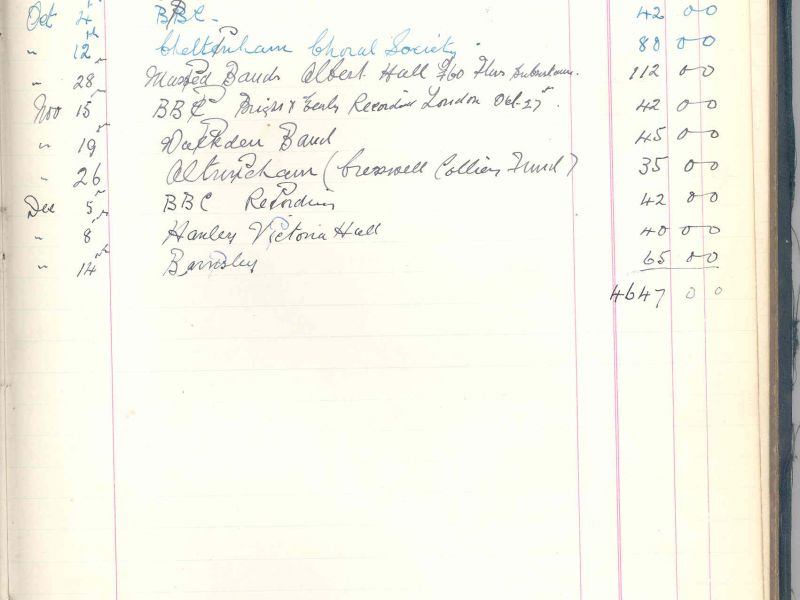 Oct 4th BBC. 42 00
" 12th Cheltenham Choral Society. 80 00
" 28 Massed Bands Albert Hall £60 Plus 112 00
Nov 15th BBC Bright & Early Recording London Oct. 27th. 42 00
" 19th Band 45 00
" 26 Altrincham (Cresswell Colliery Fund) 35 00
Dec 5th BBC Recording 42 00
" 8th Hanley Victoria Hall 40 00
" 14th Barnsley 65 00
4647 0 0